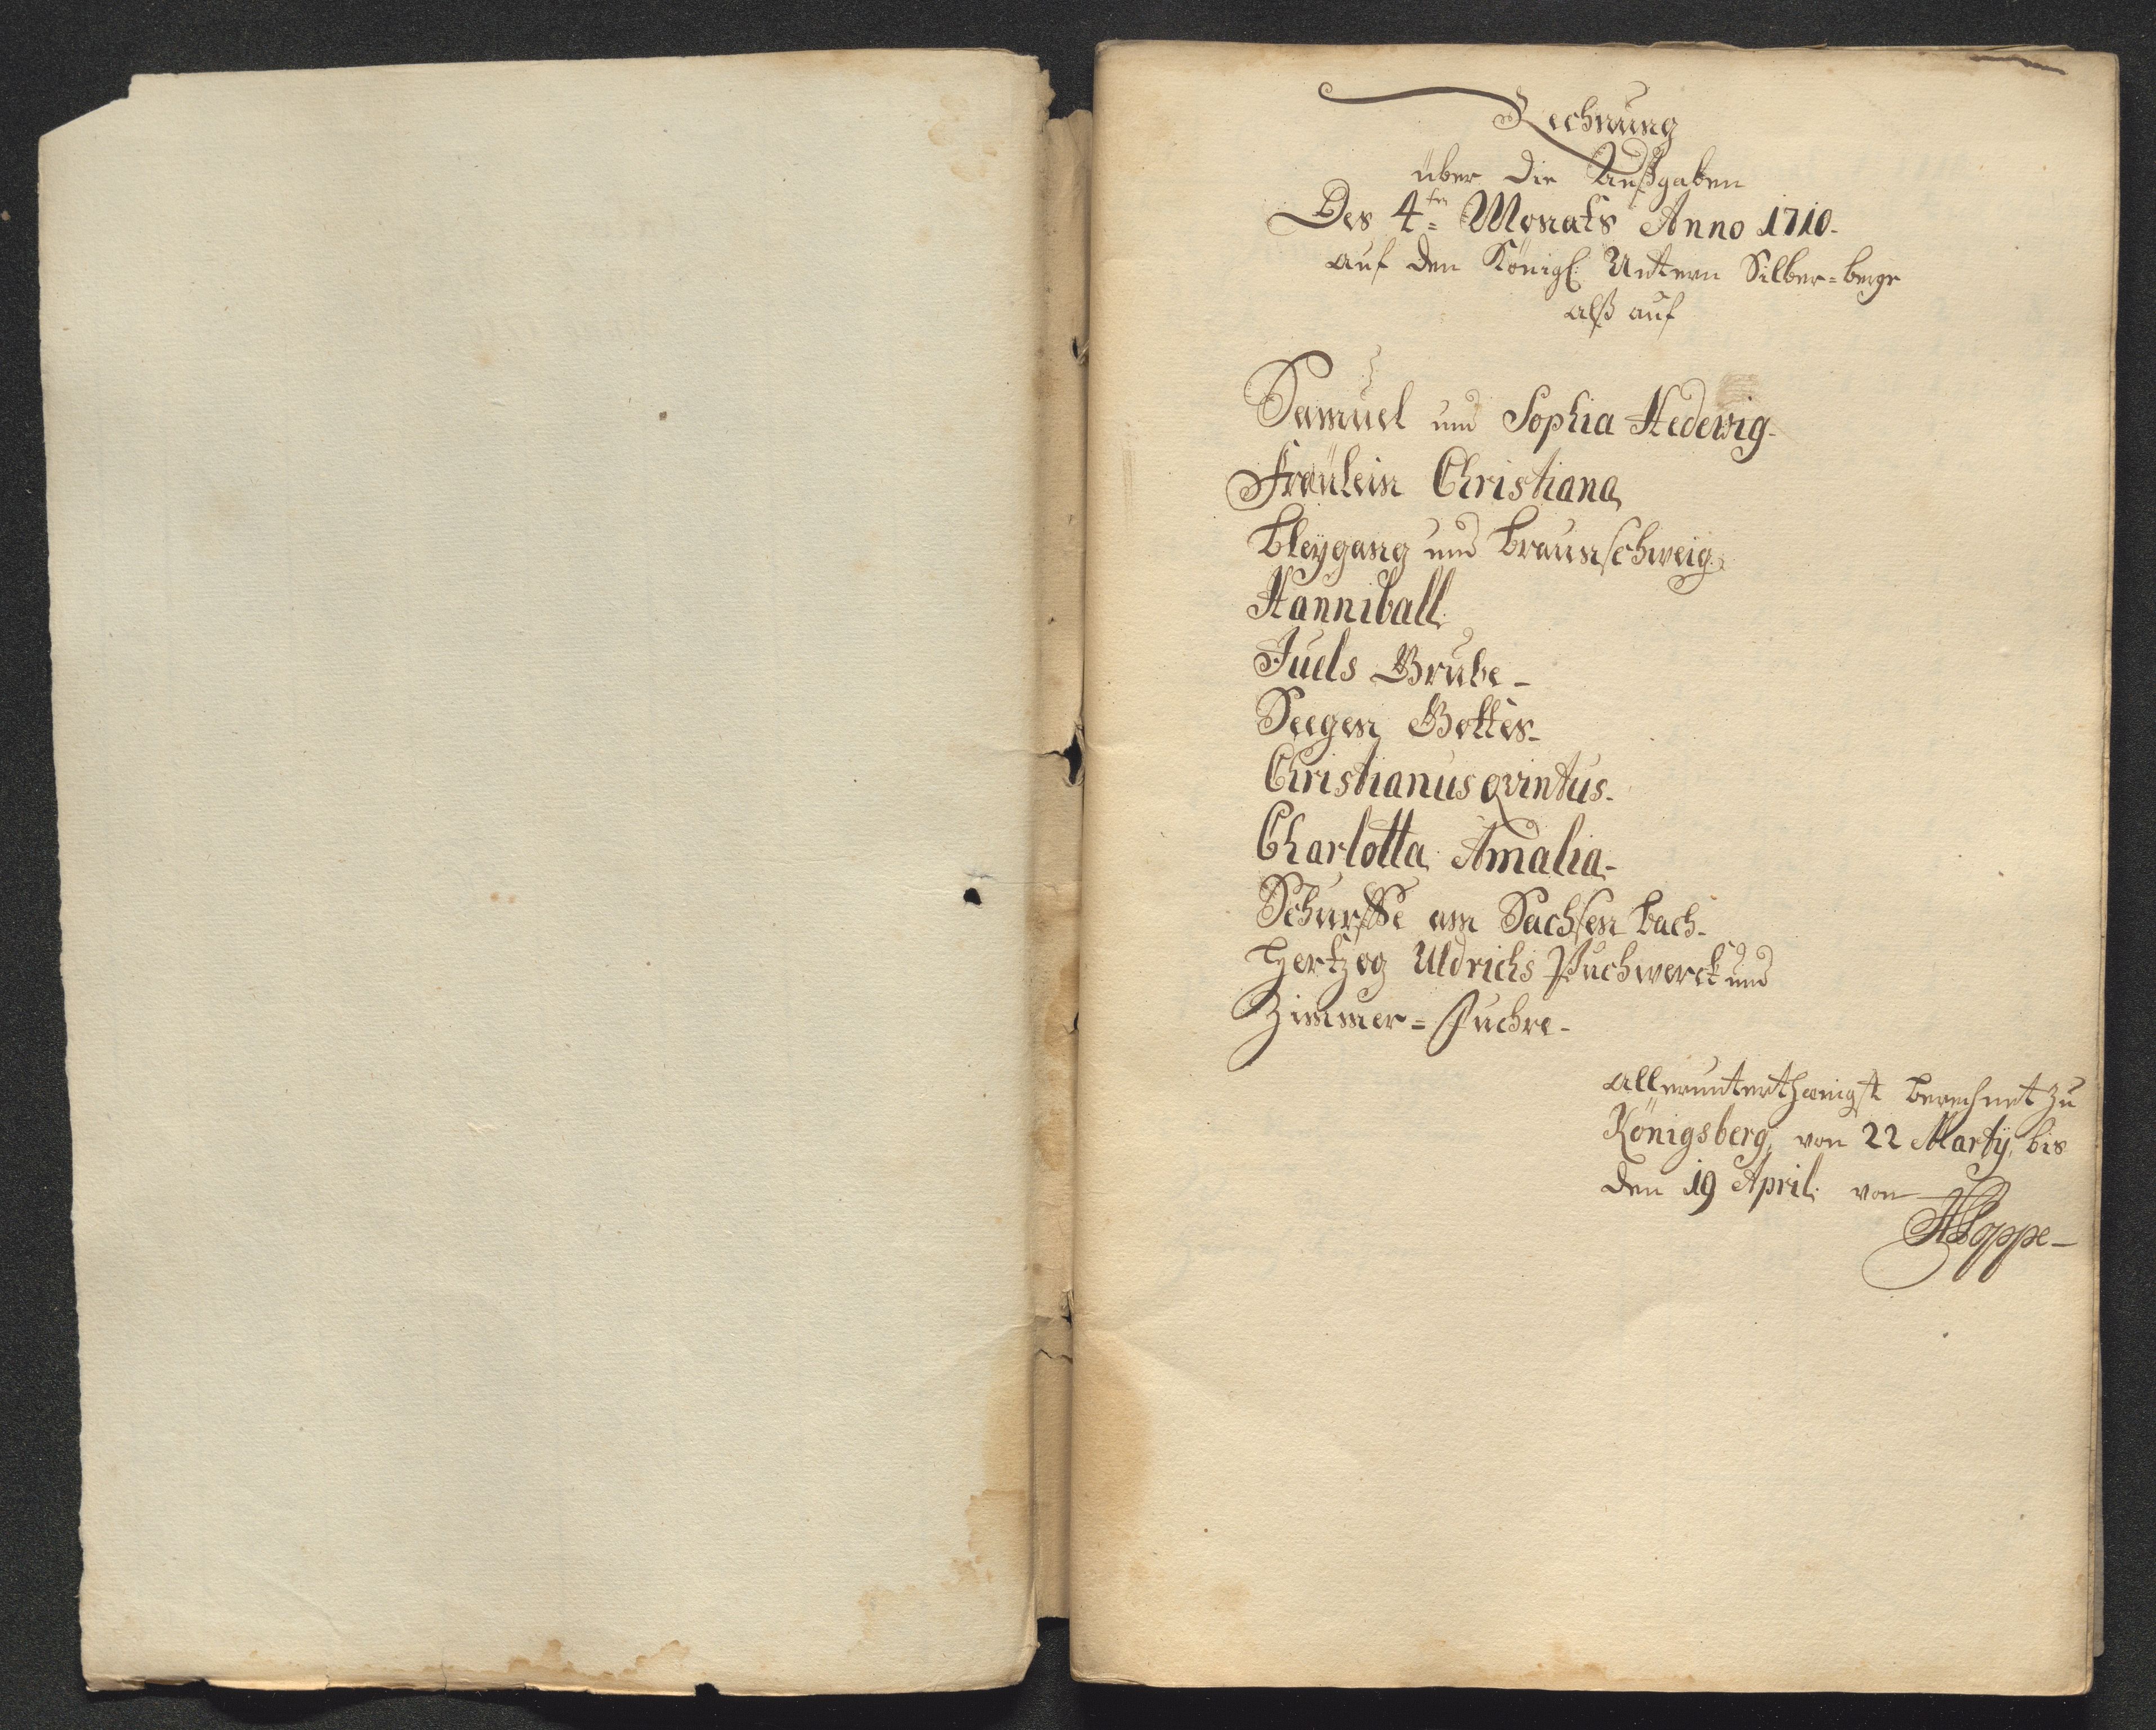 Rechnung
über die Außgaben
Des 4ten Monats Anno 1710.
auf den Königl: Untern Silber=berge
alß auf
Samuel und Sophia Hedewig.
Fräulein Christiana
Bleygang und Braunschweig.
Hanniball.
Juels Grube
Seegen Gottes.
Christianus Qvintus.
Charlotta Amalia.
Schurffe am Sachsen bach.
Hertzog Uldrichs Puchwerck und
Zimmer=
allerunterthänigst berechnet zu
Königsberg, von 22 Martÿ, bis
den 19 April: von